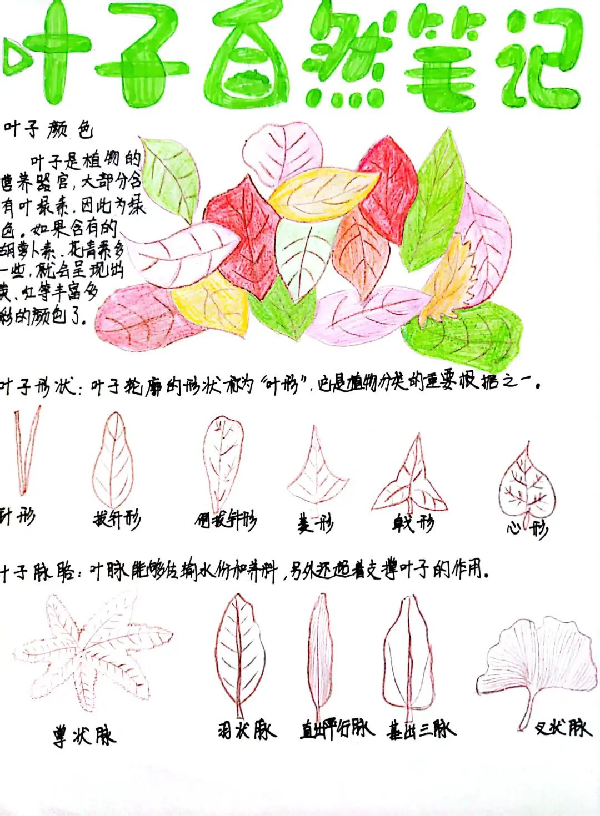 叶子自然笔记
叶子颜色
叶子是植物的
营养器官，大部分含
有叶绿素，因此为绿
色。如果含有的
胡萝卜素、花青素多
一些，就会呈现出
黄、红等丰富多
彩的颜色了。
叶子形状：叶子轮廓的形状称为“叶形”，它是植物分类的重要根据之一。
针形
披针形
倒披针形
菱形
戟形
心形
叶子脉胎：叶脉能够传输水份和养料，另外还起着支撑叶子的作用。
掌状脉
羽状脉
直出平行脉
基出三脉
叉状脉